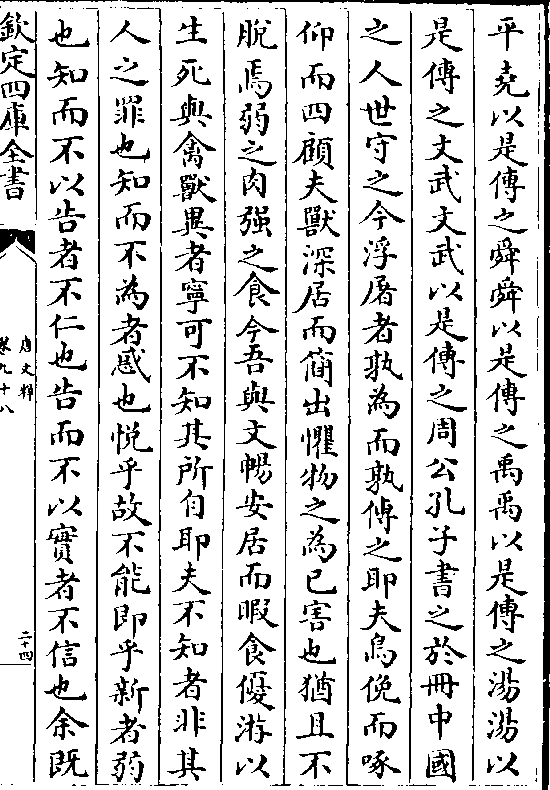 平堯以是傳之舜舜以是傳之禹禹以是傳之湯湯以
是傳之文武文武以是傳之周公孔子書之於冊中國
之人世守之今浮屠者孰為而孰傳之耶夫鳥俛而啄
仰而四顧夫獸深居而簡出懼物之為己害也猶且不
脫焉弱之肉强之食今吾與文暢安居而暇食優游以
生死與禽獸異者寧可不知其所自耶夫不知者非其
人之罪也知而不為者惑也悅乎故不能即乎新者弱
也知而不以告者不仁也告而不以實者不信也余既
欽定四庫全書
唐文粹
卷九十八
二十四